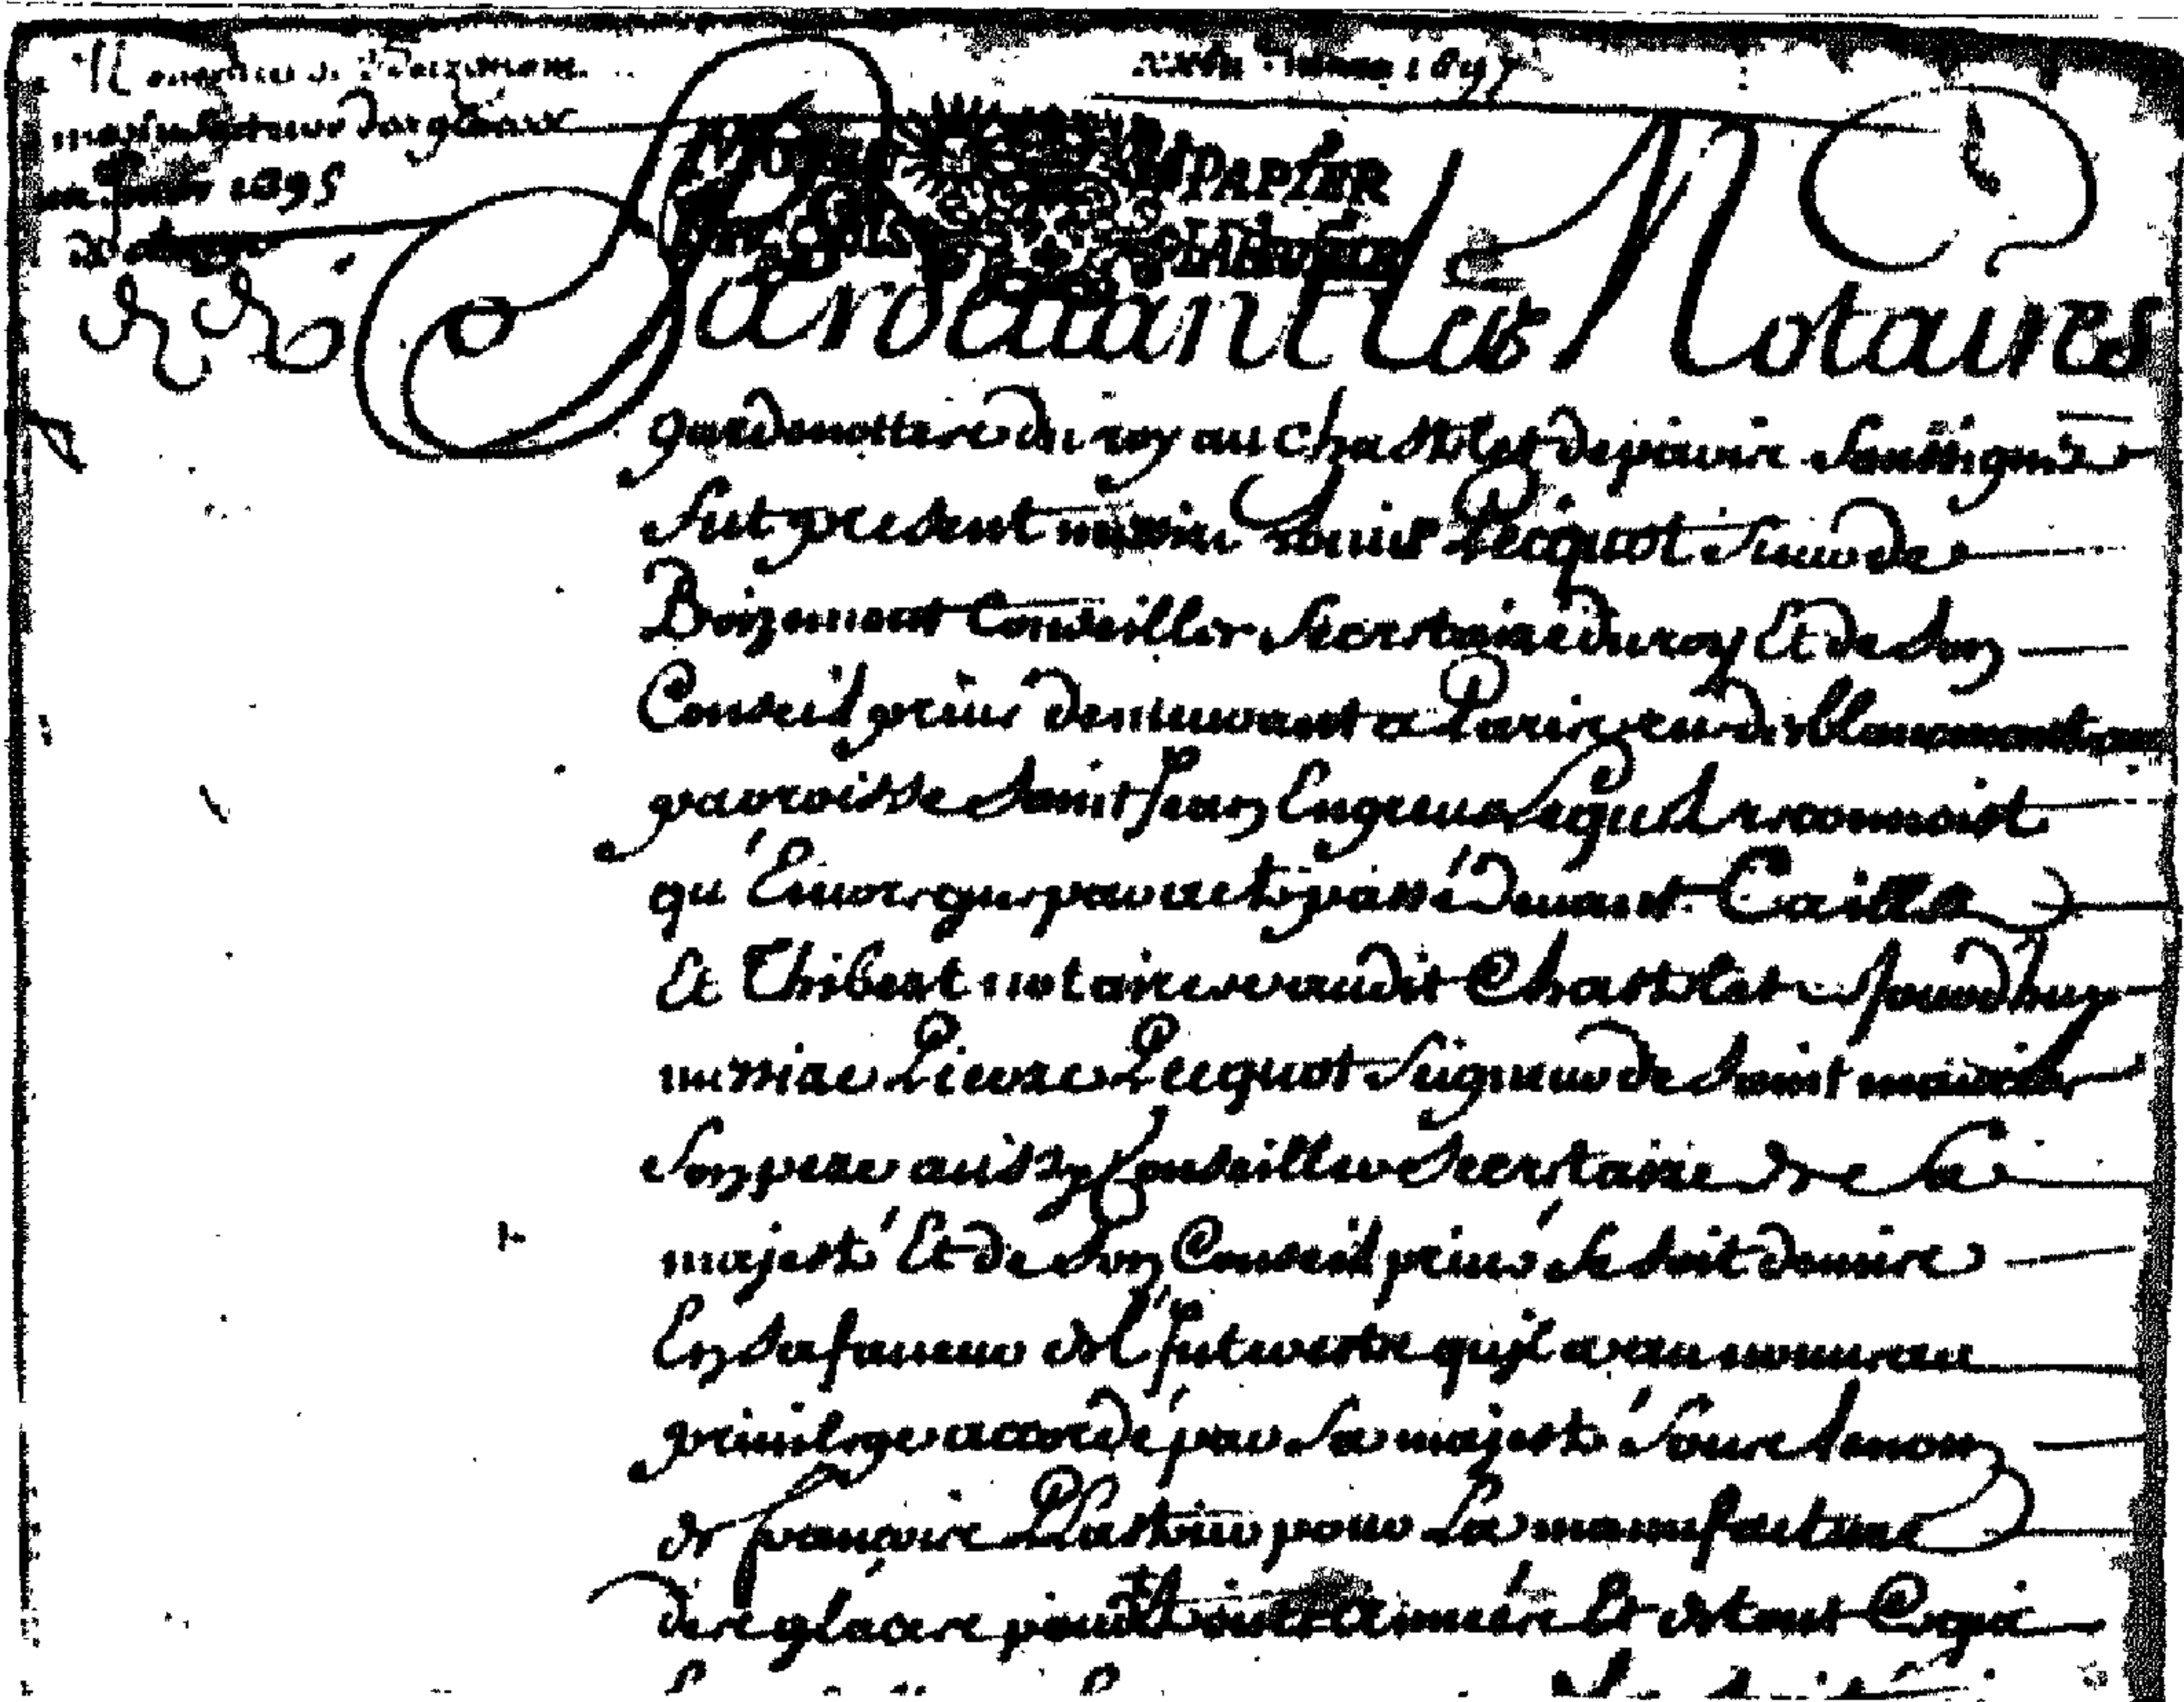 1697
manufacture des glaces
1695
PAPIER
Pardevant Les Notaires
gardenottes du roy au Chastelet de paris soussignez
fut present messire Louis Pecquot sieur de
Boizemont Conseiller secretaire du roy Et de son
Conseil privé demeurant a Paris rue des blancmanteaux
parroisse saint Jean En greve Lequel reconnoist
qu'Encores que par acte passé devant Caillet
Et Thibert notaires audit Chastelet Jourdhuy
messire Pierre Pecquot seigneur de saint maurice
son pere aussy Conseiller secretaire de sa
majesté Et de son Conseil privé se soit demis
En sa faveur de l'Interest qu'il a au nouveau
privilege accordé par sa majesté sous le nom
de françois Plastrier pour la manufacture
des glaces pour trente années Et de tout Ce qui